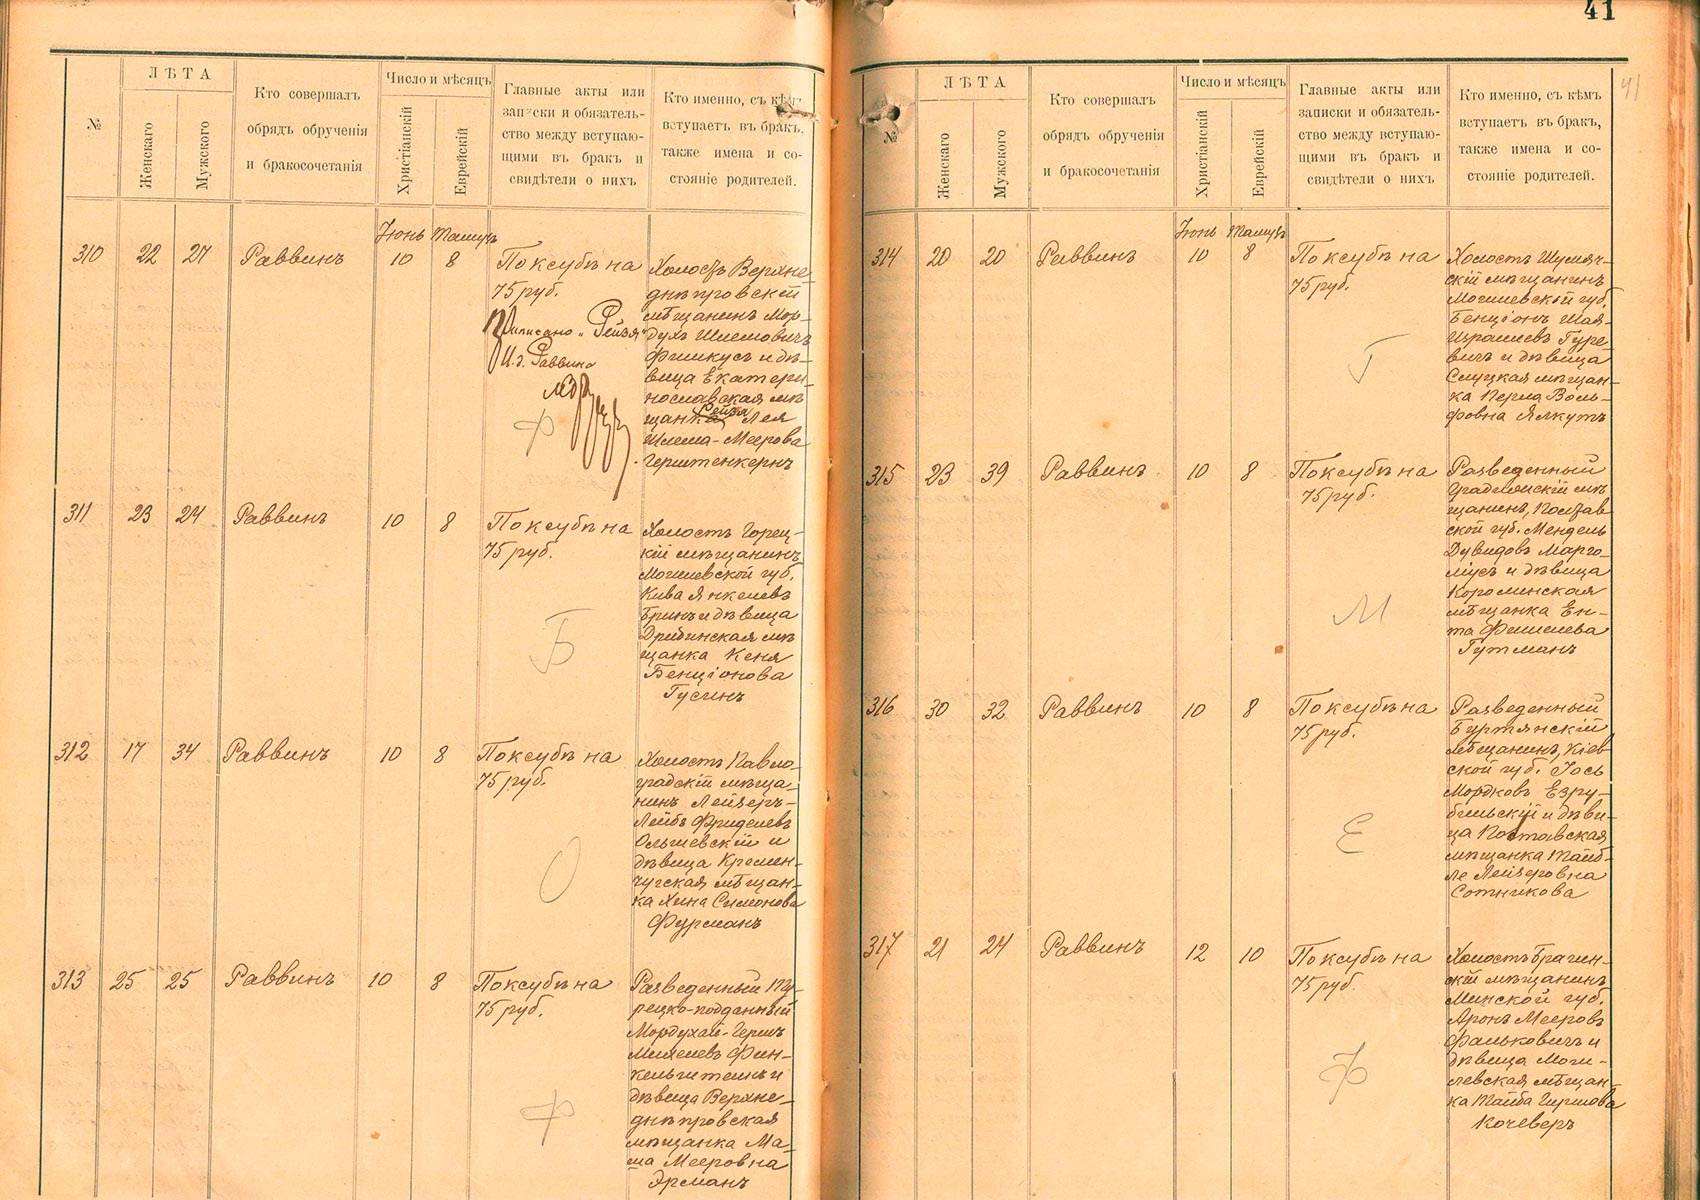 41
41
№
ЛѢТА
Женскаго
Мужского
Кто совершалъ
обрядъ обрученія
и бракосочетанія
Число и мѣсяцъ
Христіанскій
Еврейскій
Главные акты или
записки и обязатель-
ство между вступаю-
щими въ бракъ и
свидѣтели о нихъ
Кто именно, съ кѣмъ
вступаетъ въ бракъ,
также имена и со-
стояніе родителей.
310
22
27
Раввинъ
Іюнь
10
Тамузъ
8
По ксубѣ на
75 руб.
Приписано „Рейзя"
И.д. Раввина
Ф
Холостъ Верхне-
днѣпровскій
мѣщанинъ Мор-
духъ Шлемовичъ
Фишкусъ и дѣ-
вица Екатери-
нославская мѣ
щанка Рейзя Лея
Шлема-Меерова
Герштенкернъ
311
23
24
Раввинъ
10
8
По ксубѣ на
75 руб.
Б
Холостъ Горец-
кій мѣщанинъ
Могилевской губ.
Кива Янкелевъ
Бринъ и дѣвица
Дрибинская мѣ
щанка Кеня
Бенціонова
Гусинъ
312
17
34
Раввинъ
10
8
По ксубѣ на
75 руб.
О
Холостъ Павло-
градскій мѣща-
нинъ Лейзеръ-
Лейбъ Фриделевъ
Ольшевскій и
дѣвица Кремен-
чугская мѣщан-
ка Хина Симонова
Фурманъ
313
25
25
Раввинъ
10
8
По ксубѣ на
75 руб.
Ф
Разведенный Ту-
рецко-подданный
Мордухай-Гершъ
Михелевъ Фин-
кельштейнъ и
дѣвица Верхне-
днѣпровская
мѣщанка Ма-
ша Мееровна
Эрманъ
№
ЛѢТА
Женскаго
Мужского
Кто совершалъ
обрядъ обрученія
и бракосочетанія
Число и мѣсяцъ
Христіанскій
Еврейскій
Главные акты или
записки и обязатель-
ство между вступаю-
щими въ бракъ и
свидѣтели о нихъ
Кто именно, съ кѣмъ
вступаетъ въ бракъ,
также имена и со-
стояніе родителей.
314
20
20
Раввинъ
Іюнь
10
Тамузъ
8
По ксубѣ на
75 руб.
Г
Холостъ Шумяч-
скій мѣщанинъ
Могилевской губ.
Бенціонъ Шая-
Израилевъ Гуре-
вичъ и дѣвица
Слуцкая мѣщан-
ка Перла Воль-
фовна Ялкутъ
315
23
39
Раввинъ
10
8
По ксубѣ на
75 руб.
М
Разведенный
Градижскій мѣ
щанинъ, Полтав-
ской губ. Мендель
Дувидовъ Марго-
ліусъ и дѣвица
Королинская
мѣщанка Ен-
та Фишелева
Гутманъ
316
30
32
Раввинъ
10
8
По ксубѣ на
75 руб.
Е
Разведенный
Буртянскій
мѣщанинъ, Кіев-
ской губ. Іось
Мордковъ Езру-
бильскій и дѣви-
ца Полтавская
мѣщанка Тайб-
ле Лейзеровна
Сотникова
317
21
24
Раввинъ
12
10
По ксубѣ на
75 руб.
Ф
Холостъ Брагин-
скій мѣщанинъ
Минской губ.
Аронъ Мееровъ
Фальковичъ и
дѣвица Моги-
левская мѣщан-
ка Тайба Гиршова
Кочеверъ